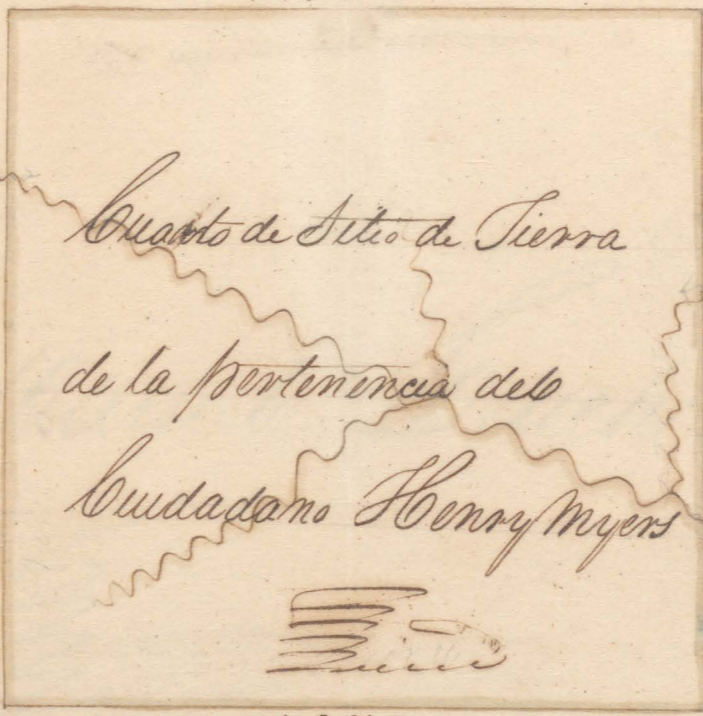 Cuarto de Sitio de Tierra
de la pertenencia del
Ciudadano Henry Myers